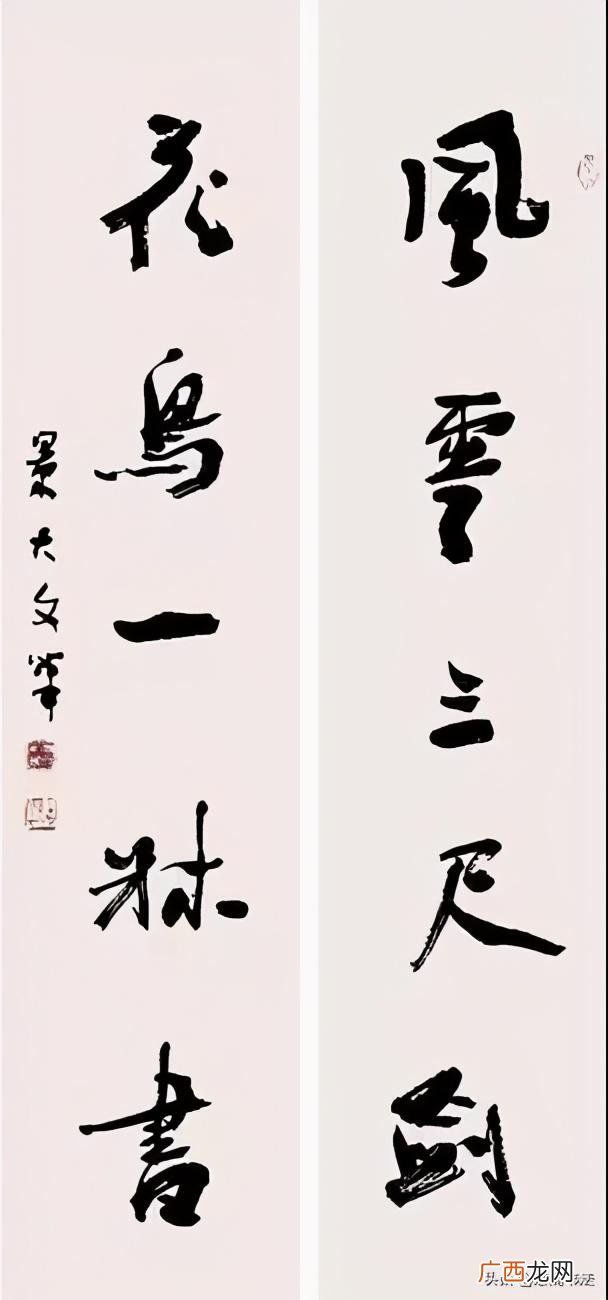 風雲三尺劍
花鳥一牀書
景大文
广西龙网